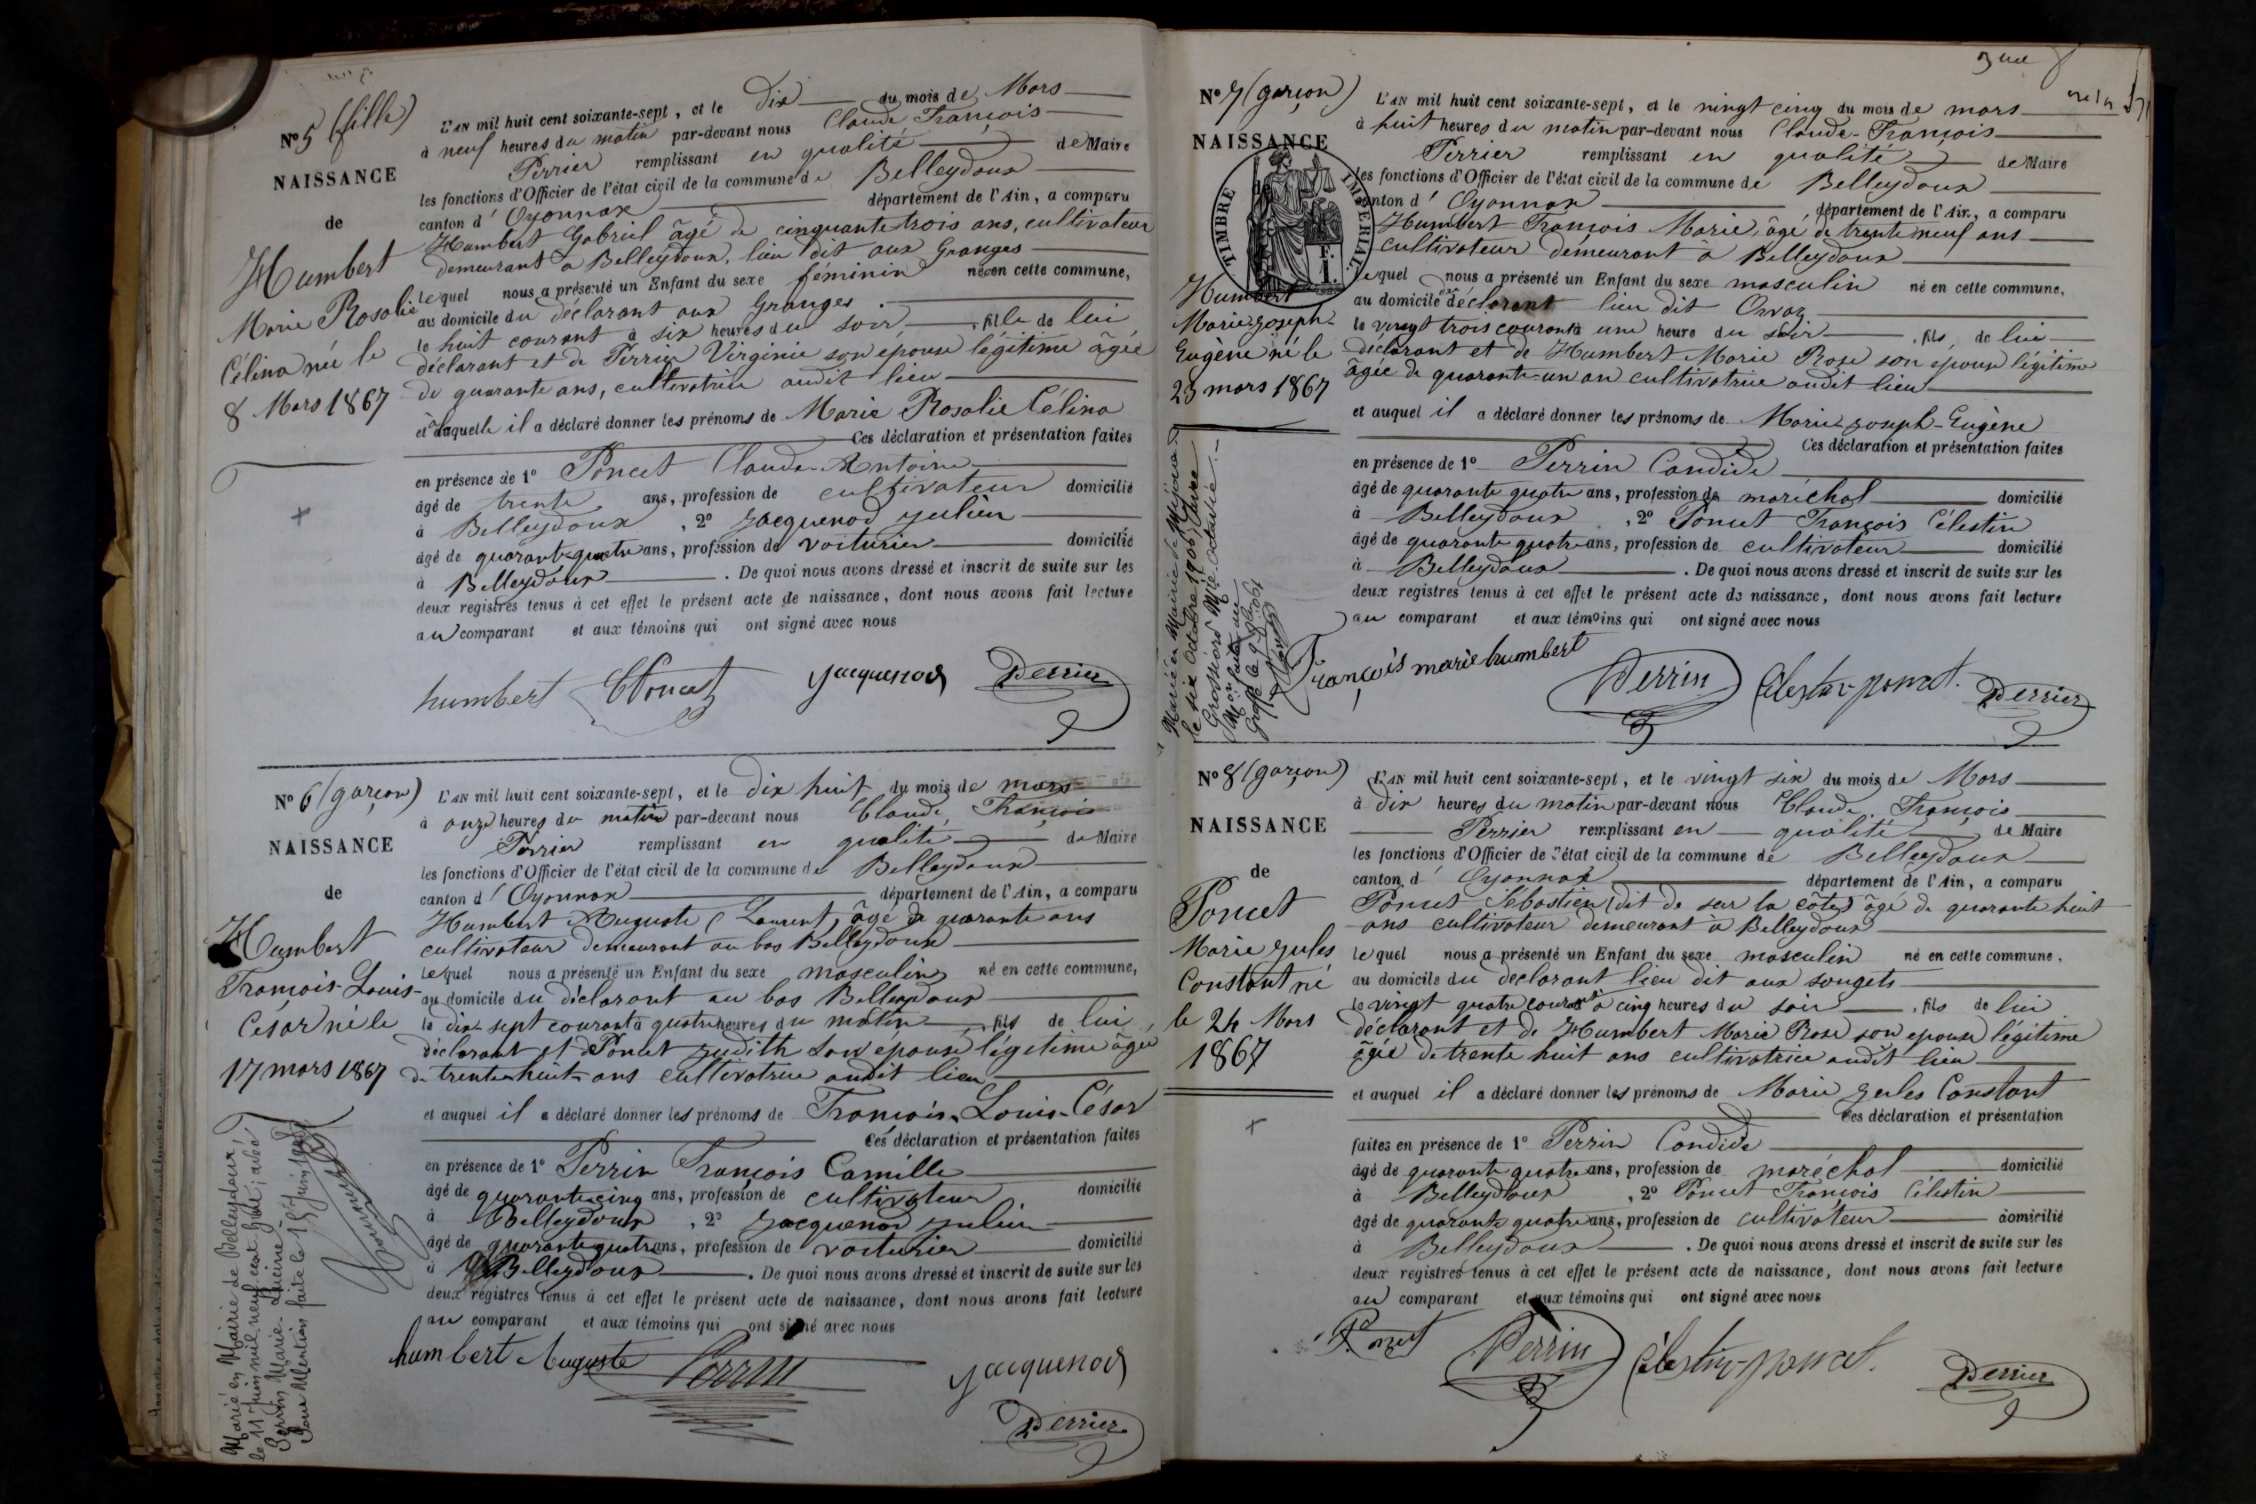 N° 5 (fille)
NAISSANCE
de
Humbert
Marie Rosalie
Célina née le
8 Mars 1867
L'AN mil huit cent soixante-sept, et le dix du mois de Mars
à neuf heures du matin par-devant nous Claude François
Perrier remplissant en qualité de Maire
les fonctions d'Officier de l'état civil de la commune de Belleydoux
canton d'Oyonnax département de l'Ain, a comparu
Humbert Gabriel âgé de cinquante trois ans, cultivateur
demeurant à Belleydoux, lieu dit aux Granges
lequel nous a présenté un Enfant du sexe féminin né en cette commune,
au domicile du déclarant aux Granges.
le huit courant à six heures du soir, fille de lui
déclarant et de Perrin Virginie son epouse légitime âgée
de quarante ans, cultivatrice audit lieu
et à laquelle il a déclaré donner les prénoms de Marie Rosalie Célina
Ces déclaration et présentation faites
en présence de 1° Poncet Claude Antoine
âgé de trente ans, profession de cultivateur domicilié
à Belleydoux, 2° Jacquenod Julien
âgé de quarante quatre ans, profession de voiturier domicilié
à Belleydoux. De quoi nous avons dressé et inscrit de suite sur les
deux registres tenus à cet effet le présent acte de naissance, dont nous avons fait lecture
au comparant et aux témoins qui ont signé avec nous
humbert Poncet Jacquenod Perrier
N° 6 (garçon)
NAISSANCE
de
Humbert
François-Louis-
César né le
17 mars 1867
Marié en Mairie de Belleydoux
le 11 Juin mil neuf cent
Perrin Marie-
Pour Mention faite le 15 Juin
L'AN mil huit cent soixante-sept, et le dix huit du mois de mars
à onze heures du matin par-devant nous Claude François
Perrier remplissant en qualité de Maire
les fonctions d'Officier de l'état civil de la commune de Belleydoux
canton d'Oyonnax département de l'Ain, a comparu
Humbert Auguste Laurent, âgé de quarante ans
cultivateur demeurant au bas Belleydoux
lequel nous a présenté un Enfant du sexe masculin né en cette commune,
au domicile du déclarant au bas Belleydoux
le dix-sept courant à quatre heures du matin, fils de lui,
déclarant et de Poncet Judith son epouse légitime âgée
de trente-huit ans cultivatrice audit lieu
et auquel il a déclaré donner les prénoms de François-Louis-César
Ces déclaration et présentation faites
en présence de 1° Perrin François Camille
âgé de quarante cinq ans, profession de cultivateur domicilié
à Belleydoux, 2° Jacquenod Julien
âgé de quarante quatre ans, profession de voiturier domicilié
à Belleydoux. De quoi nous avons dressé et inscrit de suite sur les
deux registres tenus à cet effet le présent acte de naissance, dont nous avons fait lecture
au comparant et aux témoins qui ont signé avec nous
humbert Auguste Perrin Jacquenod
Perrier
N° 7 (garçon)
NAISSANCE
de
TIMBRE IMPERIAL
F.
1.
Humbert
Marie-Joseph-
Eugène né le
23 mars 1867
Marié en Mairie de Mijoux
le six octobre 1906, avec
Grossiord Mie
L'AN mil huit cent soixante-sept, et le vingt cinq du mois de mars
à huit heures du matin par-devant nous Claude-François
Perrier remplissant en qualité de Maire
les fonctions d'Officier de l'état civil de la commune de Belleydoux
canton d'Oyonnax département de l'Ain, a comparu
Humbert François Marie, âgé de trente neuf ans
cultivateur demeurant à Belleydoux
lequel nous a présenté un Enfant du sexe masculin né en cette commune,
au domicile du déclarant lieu dit Orvaz
le vingt trois courant à une heure du soir, fils de lui
déclarant et de Humbert Marie Rose son epouse légitime
âgée de quarante-un an cultivatrice audit lieu
et auquel il a déclaré donner les prénoms de Marie-Joseph-Eugène
Ces déclaration et présentation faites
en présence de 1° Perrin Candide
âgé de quarante quatre ans, profession de maréchal domicilié
à Belleydoux, 2° Poncet François Célestin
âgé de quarante quatre ans, profession de cultivateur domicilié
à Belleydoux. De quoi nous avons dressé et inscrit de suite sur les
deux registres tenus à cet effet le présent acte de naissance, dont nous avons fait lecture
au comparant et aux témoins qui ont signé avec nous
François marie humbert Perrin Célestin poncet. Perrier
N° 8 (garçon)
NAISSANCE
de
Poncet
Marie Jules
Constant né
le 24 Mars
1867
L'AN mil huit cent soixante-sept, et le vingt six du mois de Mars
à dix heures du matin par-devant nous Claude François
Perrier remplissant en qualité de Maire
les fonctions d'Officier de l'état civil de la commune de Belleydoux
canton d'Oyonnax département de l'Ain, a comparu
Poncet Sébastien (dit de sur la côte) âgé de quarante huit
ans cultivateur demeurant à Belleydoux
lequel nous a présenté un Enfant du sexe masculin né en cette commune,
au domicile du déclarant lieu dit aux songets
le vingt quatre courant à cinq heures du soir, fils de lui
déclarant et de Humbert Marie Rose son epouse légitime
âgée de trente huit ans cultivatrice audit lieu
et auquel il a déclaré donner les prénoms de Marie Jules Constant
Ces déclaration et présentation
faites en présence de 1° Perrin Candide
âgé de quarante quatre ans, profession de maréchal domicilié
à Belleydoux, 2° Poncet François Célestin
âgé de quarante quatre ans, profession de cultivateur domicilié
à Belleydoux. De quoi nous avons dressé et inscrit de suite sur les
deux registres tenus à cet effet le présent acte de naissance, dont nous avons fait lecture
au comparant et aux témoins qui ont signé avec nous
Poncet Perrin Célestin poncet. Perrier